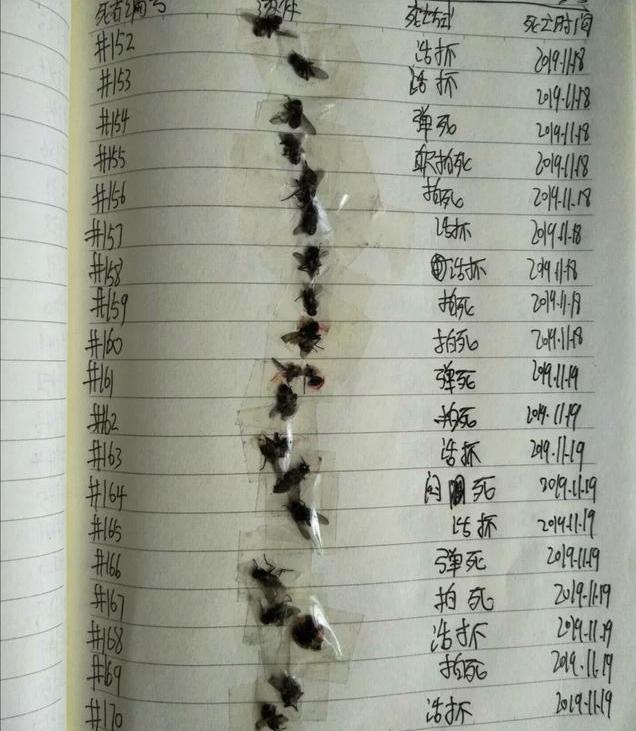 死者编号 死亡方式 死亡时间
#152 活抓 2019.11.18
#153 活抓 2019.11.18
#154 弹死 2019.11.18
#155 拍死 2019.11.18
#156 拍死 2019.11.18
#157 活抓 2019.11.18
#158 活抓 2019.11.18
#159 拍死 2019.11.18
#160 拍死 2019.11.18
#161 弹死 2019.11.19
#162 拍死 2019.11.19
#163 活抓 2019.11.19
#164 闷死 2019.11.19
#165 活抓 2019.11.19
#166 弹死 2019.11.19
#167 拍死 2019.11.19
#168 活抓 2019.11.19
#169 拍死 2019.11.19
#170 活抓 2019.11.19